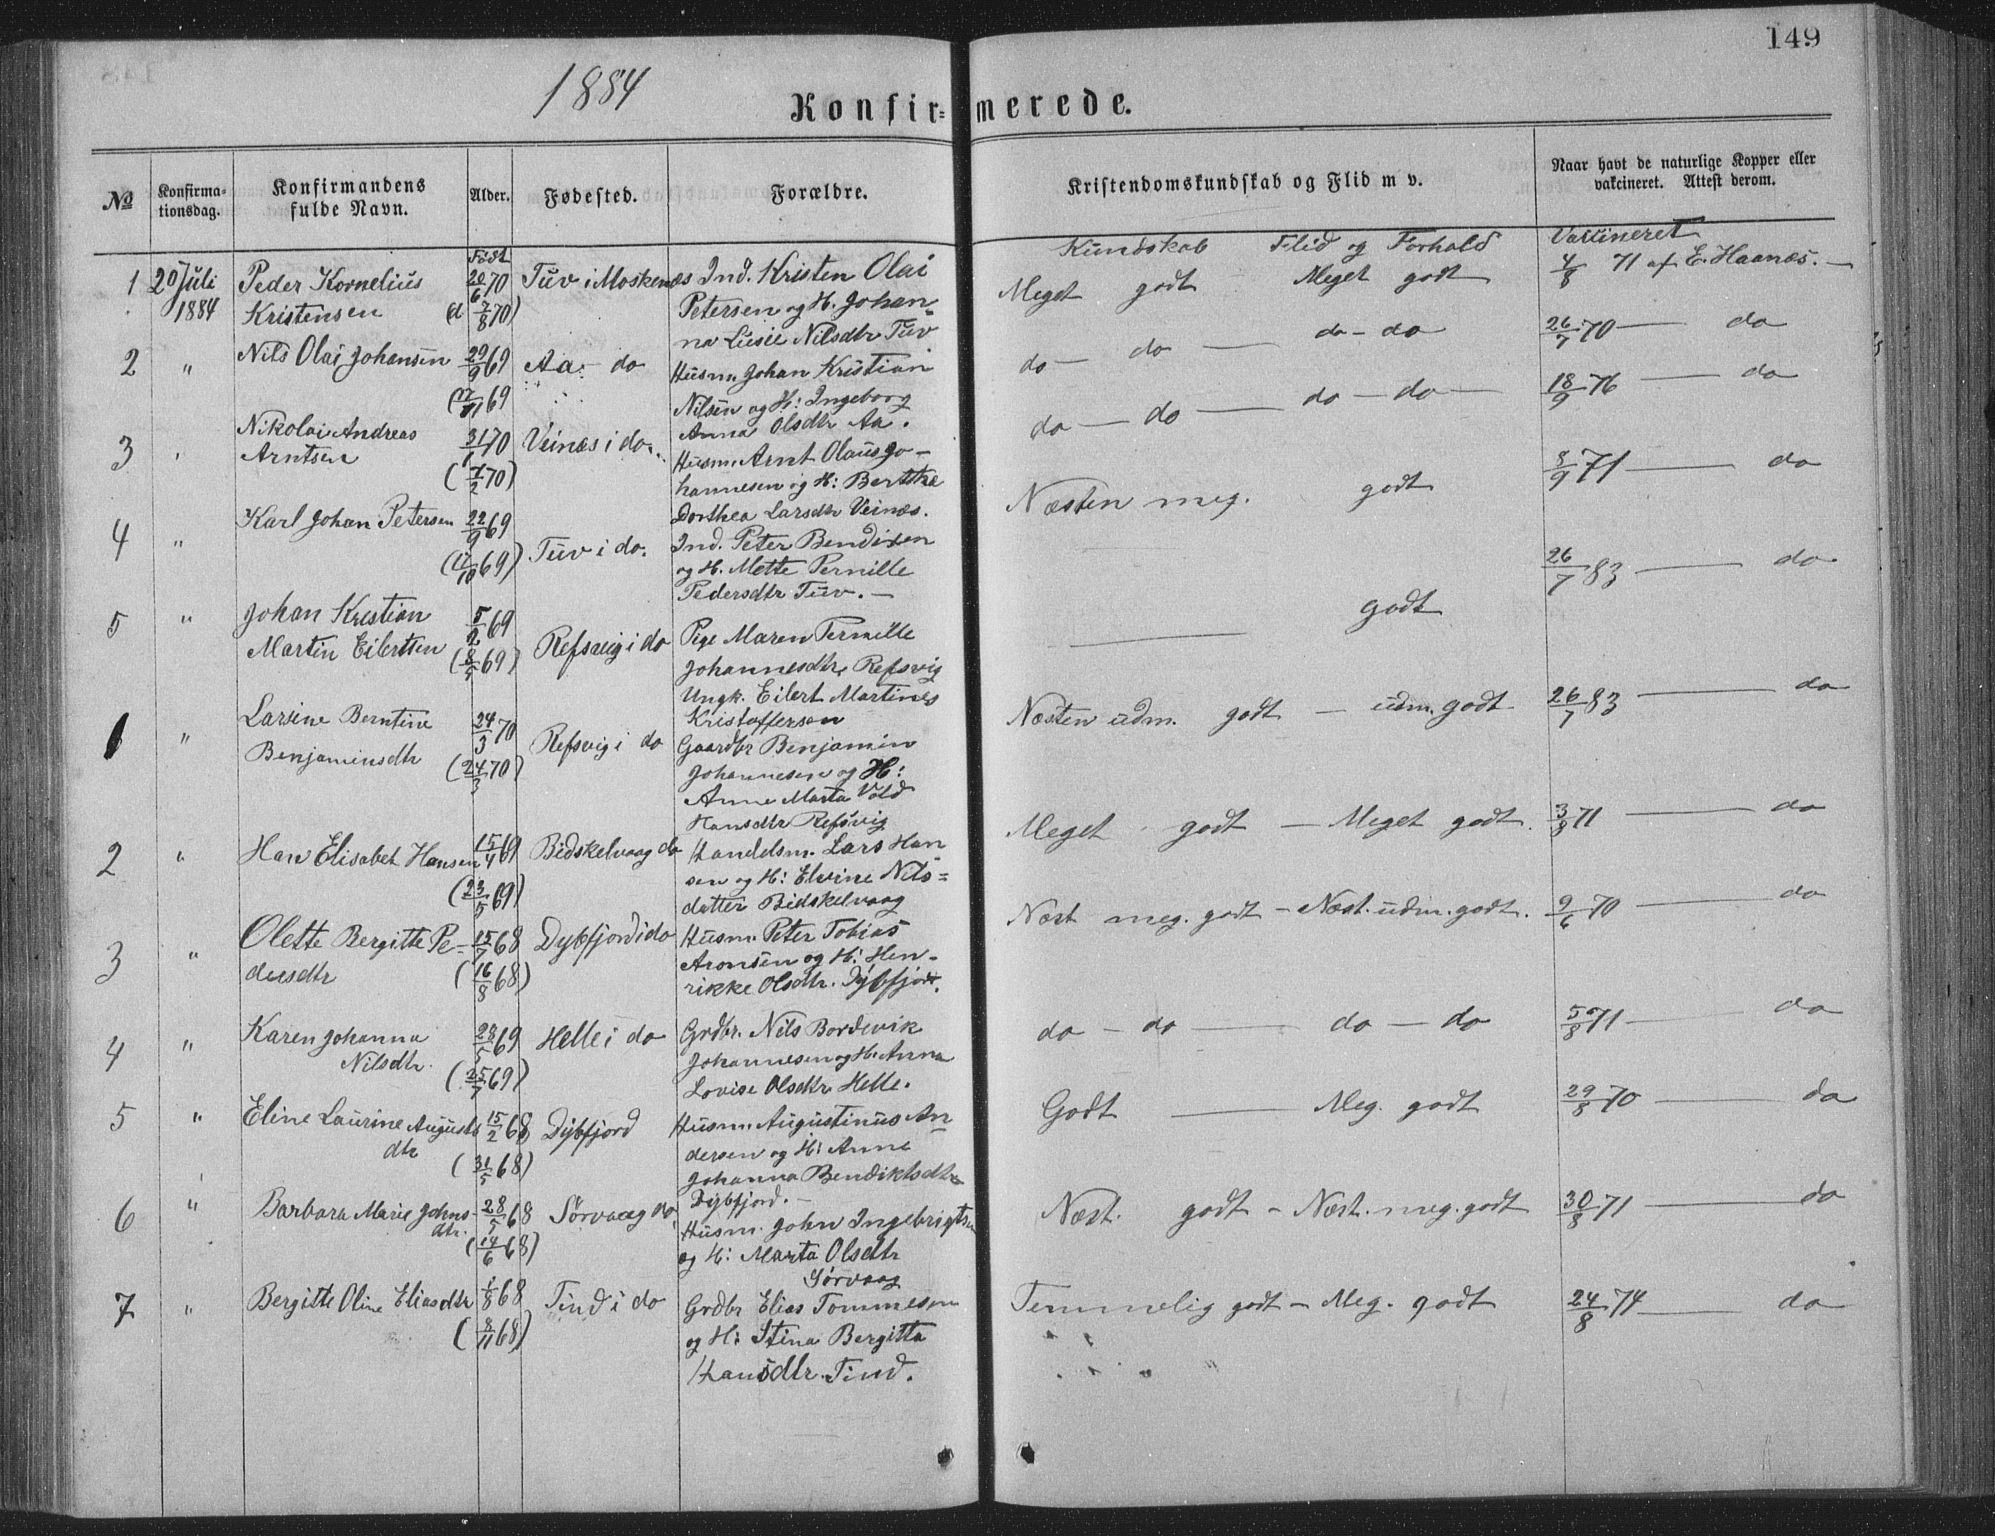 149
1884
Konfir= merede.
№ Konfirma-tionsdag. Konfirmandens fulde Navn. Alder. Fødested. Forældre. Kristendomskundskab og Flid m v. Naar havt de naturlige Kopper eller vakcineret. Attest derom.
Født Kundskab Flid og Forhold Vaccineret
1 20 Juli Peder Kornelius 20/6 70 Tuv i Moskenæs Ind. Kristen Olai Meget godt Meget godt 4/8 71 af E. Haanæs. —
1884 Kristensen (d 7/8 70) Petersen og H. Johan-
na Lusie Nilsdtr Tuv
2 " Nils Olai Johansen 29/9 69 Aa - do Husm. Johan Kristian do — do — do - do 26/7 70 — do
69 Nilsen og H: Ingeborg
Anna Olsdtr Aa.
3 Nikolai Andreas 31/1 70 Veinæs i do. Husm. Arnt Olaus Jo- do — do — do — do — 18/9 76 — do
Arntsen ( /2 70) hannesen og H: Berthe
Dorthea Larsdtr Veinæs.
4 " Karl Johan Petersen 22/9 69 Tuv i do. Ind. Peter Bendixen Næsten meg. godt 8/9 71 — do
( /10 69) og H. Mette Pernille
Pedersdtr Tuv. —
5 " Johan Kristian 5/2 69 Refsvig i do Pige Maren Pernille — godt 26/7 83 — do
Martin Eilertsen (8/5 69) Johannesdtr, Refsvig
Ungk. Eilert Martines
Kristoffersen
1 " Larsine Berntine 24/3 70 Refsvig i do Gaardbr Benjamin Næsten udm. godt — udm. godt 26/7 83 — do
Benjaminsdtr (24/3 70) Johannesen og H:
Anne Marta Vold
Hansdtr Refsvig
2 " Han Elisabet Hansen 15/4 69 Bidskelvaag do Handelsm. Lars Han Meget godt — Meget godt. 3/8 71 — do
(23/5 69) sen og H: Elvine Nils=
datter Bidskelvaag
3 " Olette Bergitte Pe- 15/7 68 Dybfjord i do Husm. Peter Tobias Næst meg. godt — Næst. udm. godt. 9/6 70 — do
dersdtr (16/8 68) Aronsen og H: Hen-
rikke Olsdtr. Dybfjord.
4 " Karen Johanna 28/5 69 Helle i do Grdbr. Nils Bordevik do — do — do — do 5/8 71 — do
Nilsdtr. (25/7 69) Johannesen og H. Anna
Lovise Olsdtr Helle.
5 " Eline Laurine Augusts 15/2 68 Dybfjord Husm. Augustinus An Godt — Meg. godt 29/8 70 — do
dtr (31/5 68) dersen og H: Anne
Johanna Bendiktsdtr
Dybfjord. —
6 " Barbara Marie Johns- 28/5 68 Sørvaag do. Husm. John Ingebrigtsen Næst. godt — Næst. meg. godt 30/8 71 — do
dtr. (14/6 68) og H: Marta Olsdtr
Sørvaag
7 " Bergitte Oline Eliasdtr 1/8 68 Tind i do Grdbr Elias Tommesen Temmelig godt — Meg. godt 24/8 74 — do
(8/11 68) og H: Stina Bergitta
Hansdtr. Tind.